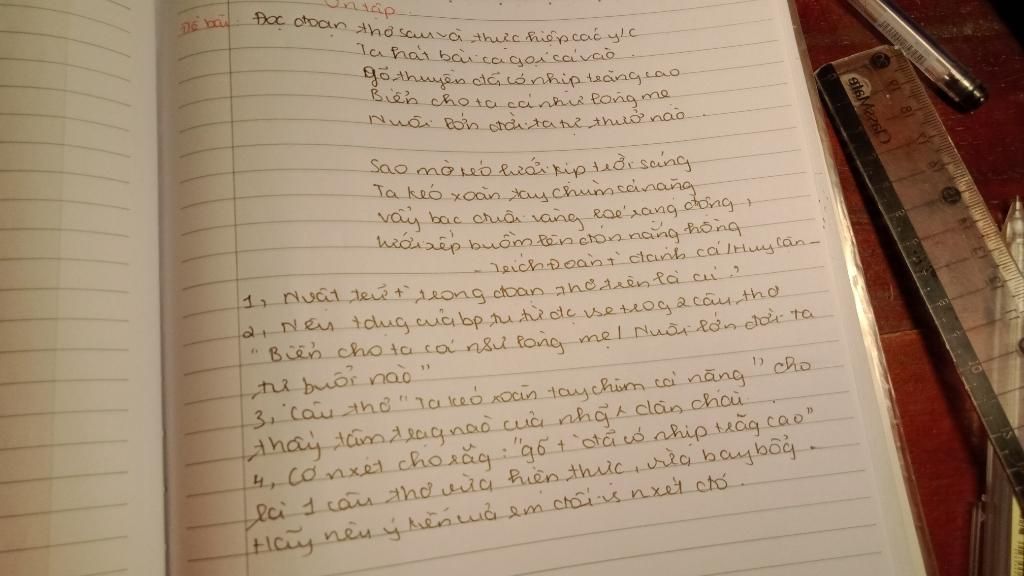 Ôn tập
Đề bài: Đọc đoạn thơ sau và thực hiệp các y/c
Ta hát bài ca gọi cá vào
gõ thuyền đã có nhịp trăng cao
Biển cho ta cá như lòng mẹ
Nuôi lớn đời ta tự thuở nào.
Sao mờ kéo lưới kịp trời sáng
Ta kéo xoăn tay chùm cá nặng
vảy bạc đuôi vàng loé rạng đông,
lưới xếp buồm lên đón nắng hồng
- Trích Đoàn t đánh cá / Huy Cận -
1, N.vật trữ t trong đoạn thơ trên là ai,
2, Nêu t dụg của bp tu từ đc use trog 2 câu thơ
"Biển cho ta cá như lòng mẹ / Nuôi lớn đời ta
tự buổi nào"
3, Câu thơ "Ta kéo xoăn tay chùm cá nặng" cho
thấy tâm trạg nào của nhg^~ dân chài
4, Có nxét cho rằg: "gõ t đã có nhịp trăg cao"
là 1 câu thơ vừa hiện thực, vừa bay bổg.
Hãy nêu ý kiến của em đối vs nxét đó.